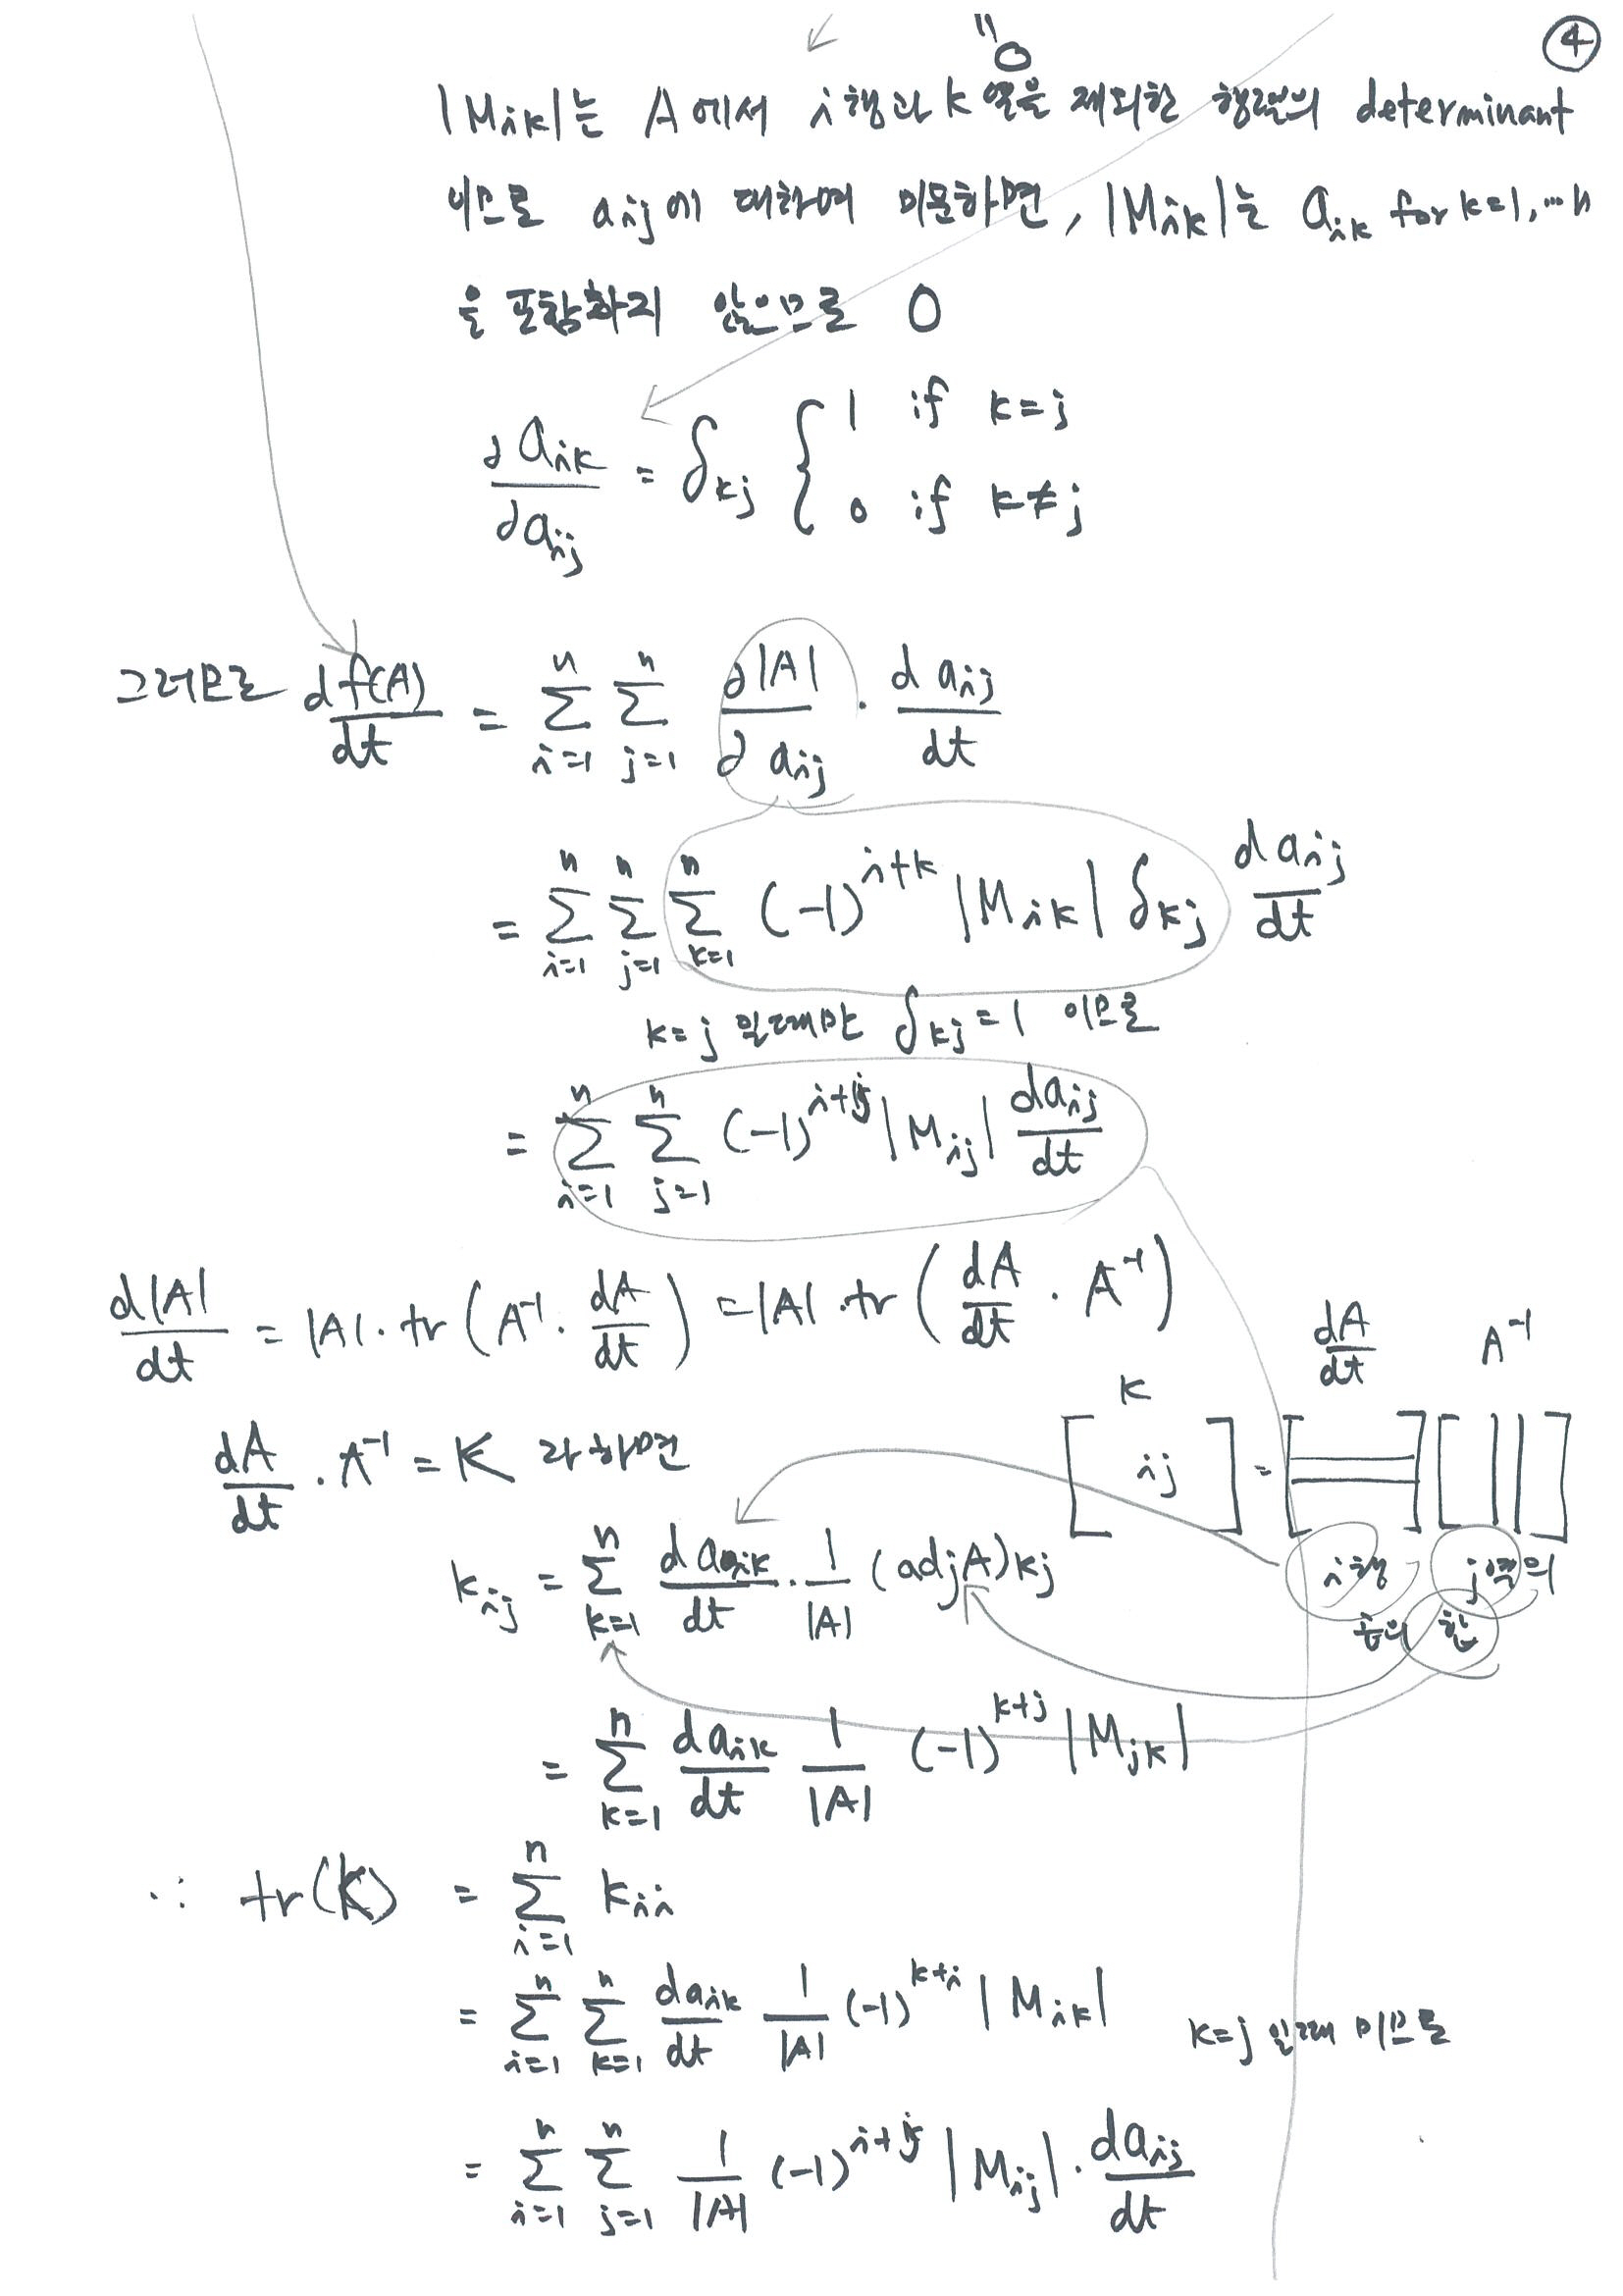 ④
" 0
|Mik|는 A에서 i행과 k열을 제외한 행렬의 determinant
이므로 aij에 대하여 미분하면, |Mik|는 aik for k=1, … n
을 포함하지 않으므로 0
∂aik/∂aij = δkj { 1 if k=j
0 if k≠j
그러므로 df(A)/dt = Σ(i=1→n) Σ(j=1→n) ∂|A|/∂aij · daij/dt
= Σ(i=1→n) Σ(j=1→n) Σ(k=1→n) (-1)^(i+k) |Mik| δkj daij/dt
k=j 일때만 δkj=1 이므로
= Σ(i=1→n) Σ(j=1→n) (-1)^(i+j) |Mij| daij/dt
d|A|/dt = |A|·tr(A⁻¹·dA/dt) = |A|·tr(dA/dt · A⁻¹)
dA/dt · A⁻¹ = K 라 하면
K dA/dt A⁻¹
[ij] = [ ] [ ]
i행 j열의
곱의 합
kij = Σ(k=1→n) daik/dt · 1/|A| (adjA)kj
= Σ(k=1→n) daik/dt 1/|A| (-1)^(k+j) |Mjk|
∴ tr(K) = Σ(i=1→n) kii
= Σ(i=1→n) Σ(k=1→n) daik/dt 1/|A| (-1)^(k+i) |Mik| k=j 일때 이므로
= Σ(i=1→n) Σ(j=1→n) 1/|A| (-1)^(i+j) |Mij| · daij/dt